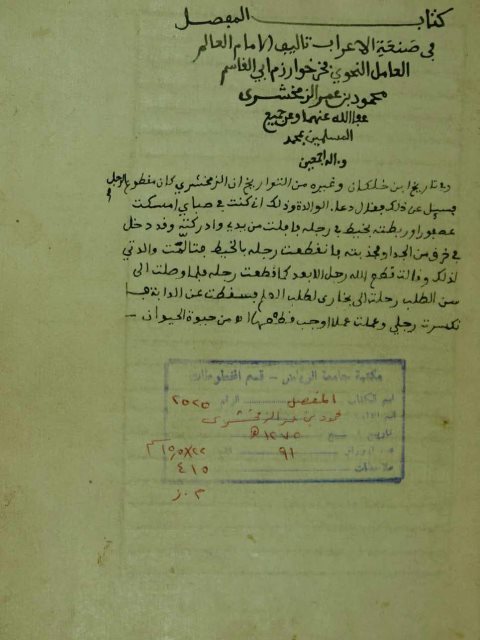 كتاب المفصل
فى صنعة الاعراب تاليف الامام العالم
العامل النحوي فخر خوارزم ابي القاسم
محمود بن عمر الزمخشرى
عفا الله عنهما وعن جميع
المسلمين بمحمد
واله اجمعين
وفى تاريخ ابن خلكان وغيره من التواريخ ان الزمخشري كان مقطوع الرجل
فسيل عن ذلك فقال دعا الوالدة وذلك انى كنت في صباي امسكت
عصفورا وربطته بخيط في رجله فافلت من يدي وادركته وقد دخل
فى خرق من الجدار فجذبته فانقطعت رجله بالخيط فتالمت والدتي
لذلك وقالت قطع الله رجل الابعد كما قطعت رجله فلما وصلت الى
سن الطلب رحلت الى بخارى لطلب العلم فسقطت عن الدابة
فكسرت رجلي وعملت عملا اوجب قطعها اه من حيوة الحيوان
مكتبة جامعة الرياض - قسم المخطوطات
اسم الكتاب المفصل الرقم ٢٥٢٥
محمود بن عمر الزمخشرى
تاريخ ١٢٧٥ هـ
٩١ ٢٢×١٥٫٥ سم
ملاحظات ٤١٥
م . ز